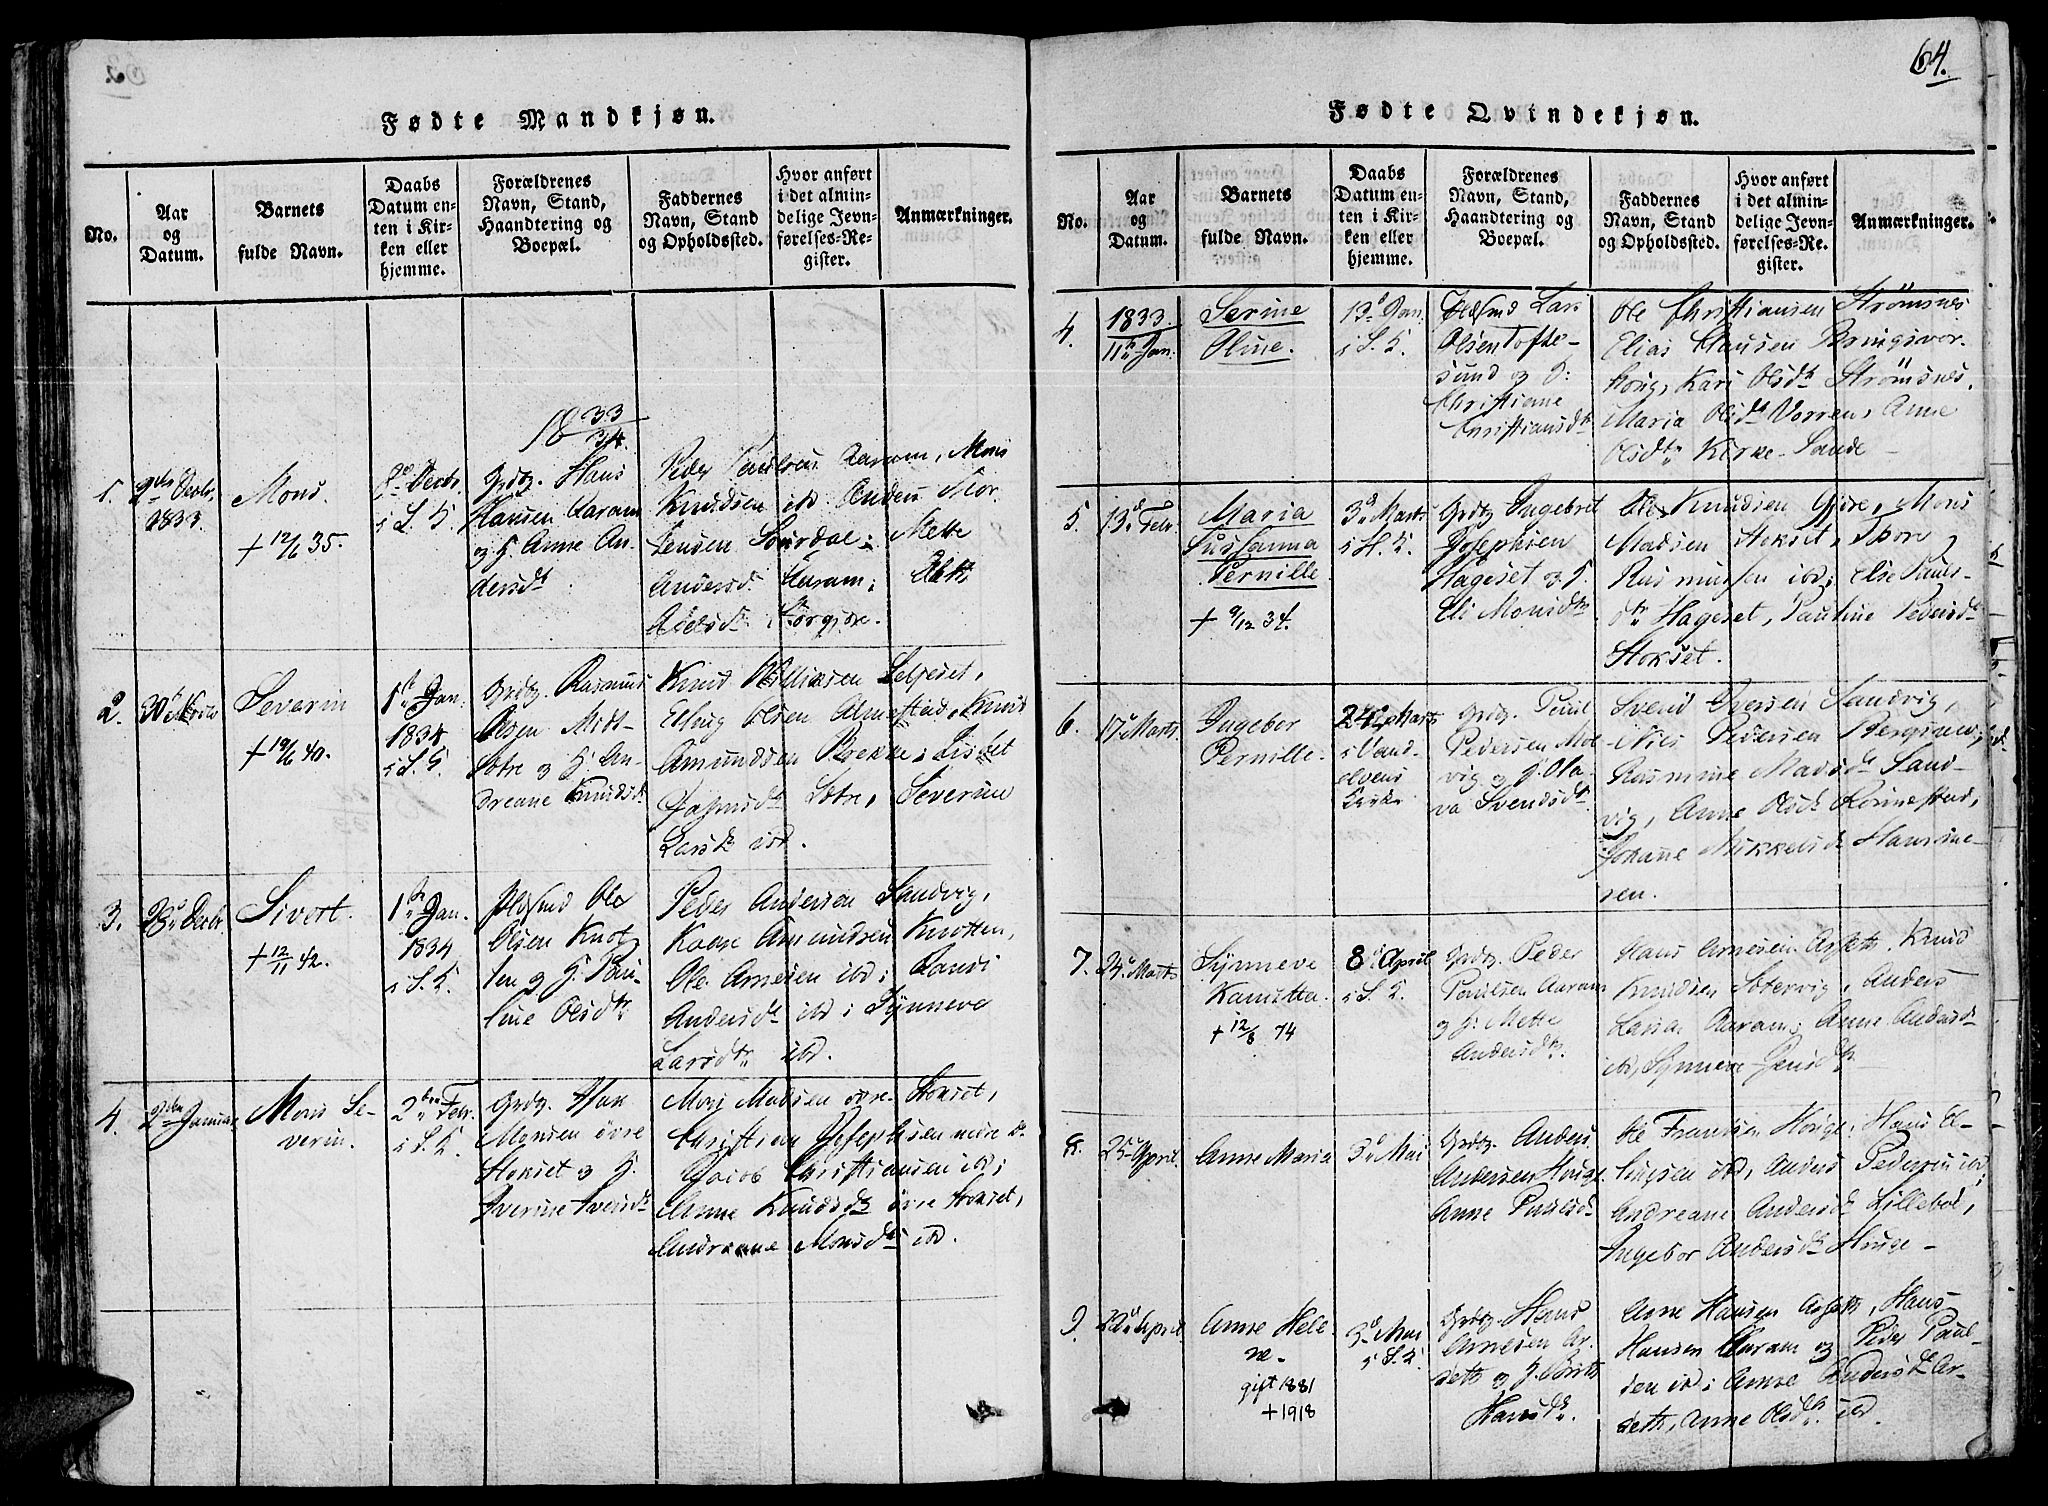 64.
Fødte Mandkjøn.
No.
Aar og Datum.
Barnets fulde Navn.
Daabs Datum enten i Kirken eller hjemme.
Forældrenes Navn, Stand, Haandtering og Boepæl.
Faddernes Navn, Stand og Opholdssted.
Hvor anført i det almindelige Jevnførelses-Register.
Anmærkninger.
1833/34.
1.
2den Decbr. 1833.
Mons.
+ 12/6 35.
8de Decbr. i S. K.
Grdbg. Hans
Hansen Aaram
og H. Anne An-
dersdt.
Peder Paulsen Aaram, Mons
Knudsen ibd Anders Mor.
Jensen Sørdal; Mette
Andersd. Aaram;
2.
30te
Severin
+ 19/6 40.
1st Jan. 1834 i S. K.
Grdbg. Rasmus
Olsen Midt-
Sætre og H. An-
dreane Knudsdt
Knud Olsen
Olsen Almestad, Knud
Amundsen Brekke; Lisbet
Sætre, Severine
Larsdt. ibd.
3.
28de Decbr.
Sivert.
+ 12/11 42.
1ste Jan. 1834 i S. K.
Pladsmd Ole
Olsen Knot-
ten og H. Pau-
line Olsdtr
Peder Andersen Sandvig,
Kaare Amundsen Knotten,
Ole Arnesen ibd; Randi
Andersd. ibd; Synneve
Larsdtr. ibd.
4.
2den Januar
Mons Se-
verin.
2den Febr. i S. K.
Grdbg. Isak
Monsen övre
Stokset og H.
Iverine Iversdt
Mons Madsen övre Stokset,
Christian Josephsen nedre do
Jacob Christiansen ibd;
Anne Knudsdt övre Stokset,
Andreane Monsdt. ibd.
Fødte Qvindekjøn.
No.
Aar og Datum.
Barnets fulde Navn.
Daabs Datum enten i Kirken eller hjemme.
Forældrenes Navn, Stand, Haandtering og Boepæl.
Faddernes Navn, Stand og Opholdssted.
Hvor anført i det almindelige Jevnførelses-Re. gister.
Anmærkninger.
4.
1833
11te Jan.
Serine
Oline.
13de Jan. i S. K.
Pladsmd Lars
Olsen Tofte-
sund og H:
Christiane
Christiansdt
Ole Christiansen Strømsnes
Elias Clausen Bringsvor.
houg, Kari Olsdtr Strømsnes.
Maria Olsdt. Vorren, Anne
Olsdtr. Kirke-Sande
5.
13de Febr.
Maria
Susanna
Pernille.
+ 9/12 34.
3de Marts i S. K.
Grdbg Ingebret
Josephsen
Hageset og H.
Eli Monsdtr
Ole Knudsen Gjøre, Mons
Madsen Stokset, Thore
Rasmussen ibd; Else Pauls-
dtr. Hageset, Pauline Pedersdt
Stokset.
6.
17de Marts.
Ingebor
Pernille.
24de Marts i Vand-
elvens
Kirke
Grdbg. Paul
Pedersen Mol-
vig og H. Ola-
va Svendsdt.
Svend Iversen Sandvig,
Niels Pedersen Bergsnev,
Rasmine Madsdt. Sand-
vig, Anne Olsdt. Rønnestad,
Johanne Mikkelsdt Hansine-
sen.
7.
24de Marts
Synneve
Kanutta.
+ 12/8 74
8de April i S. K.
Grdbg. Peder
Paulsen Aaram
og H. Mette
Andersdtr.
Hans Arnesen Arseth, Knud
Knudsen Sætervig, Anders
Larsen Aaram; Anne Andersdt
ibd, Synneve Jensdtr.
8.
25de April.
Anne Maria
3de Mai
Grdbg. Anders
Andersen Houge.
Anne Paulsdt.
Ole Frantsen Houge; Hans El-
lingsen ibd, Anders Pedersen ibd;
Andreane Andersdt Lillebø,
Ingebor Andersdt. Houge
9.
22de April
Anne Hele-
ne.
gift 1881
+ 1918
3de Mai i S. K.
Grdbg. Hans
Arnesen Ar-
seth og H. Berith
Hansdt.
Arne Hansen Arseth, Hans
Hansen Aaram og Peder Paul-
sen ibd; Anne Andersdt Ar-
seth, Anne Olsdt. ibd.